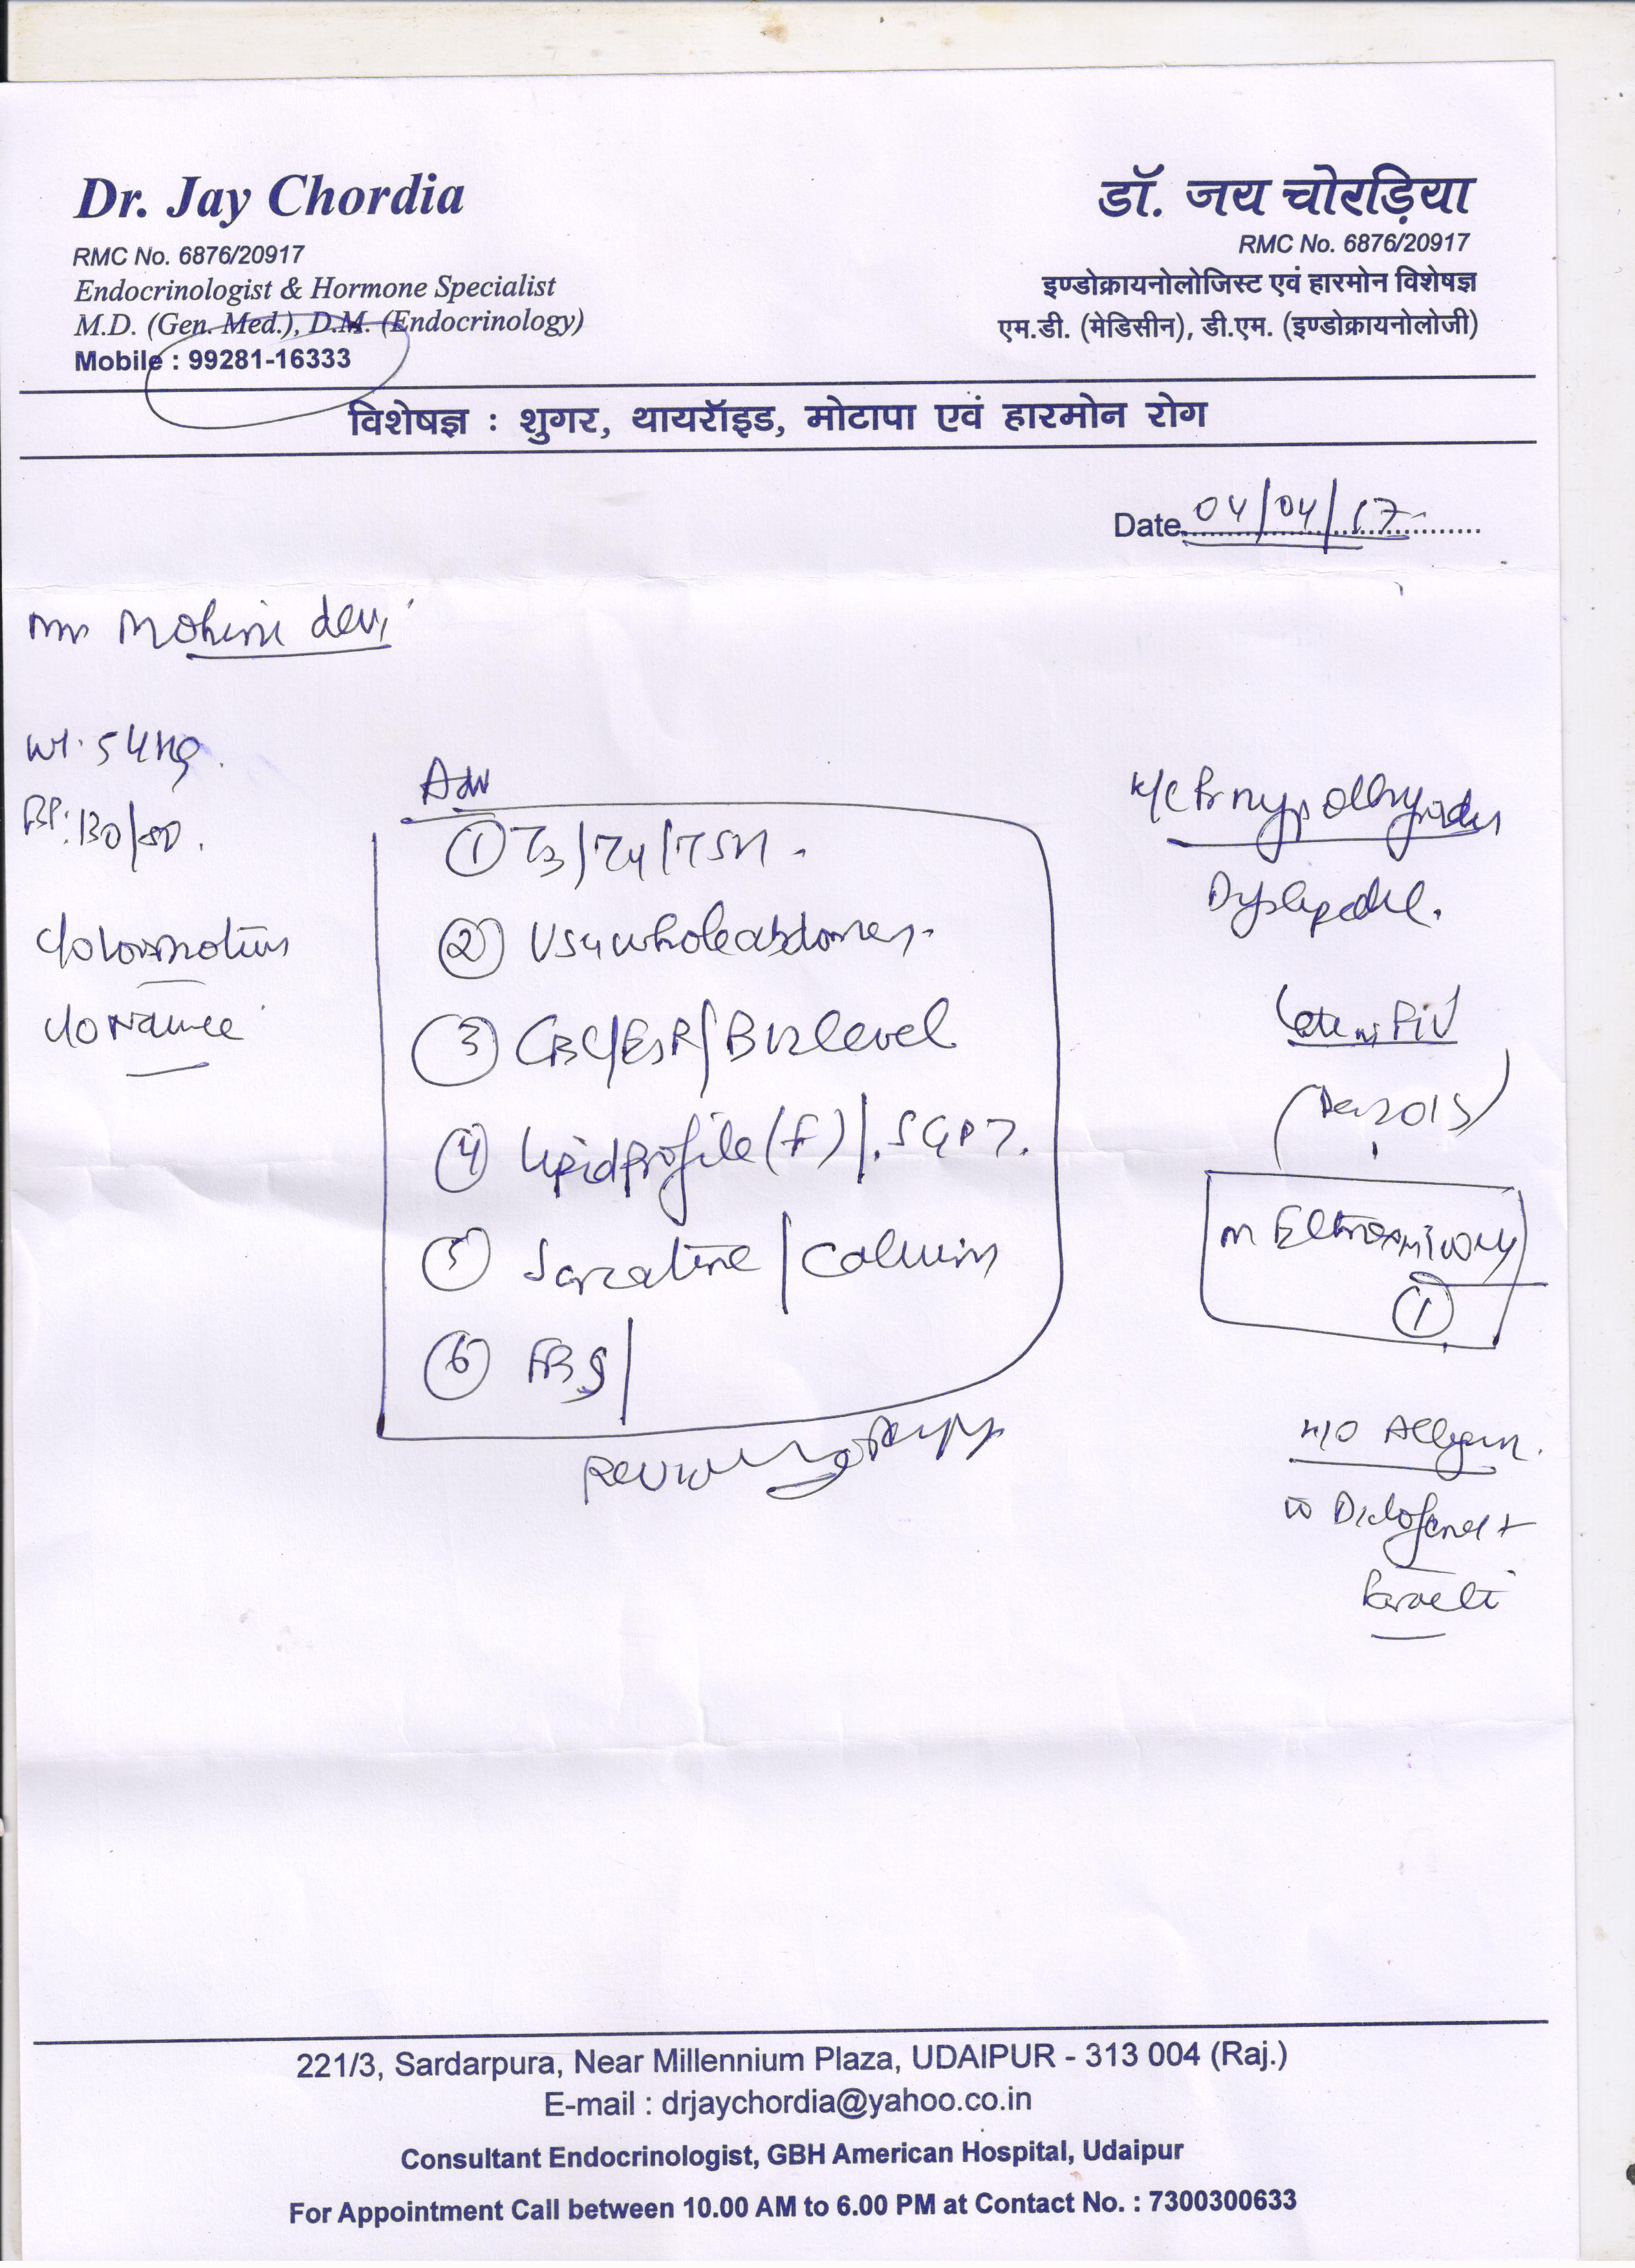 Dr. Jay Chordia
RMC No. 6876/20917
Endocrinologist & Hormone Specialist
M.D. (Gen. Med.), D.M. (Endocrinology)
Mobile : 99281-16333
डॉ. जय चोरड़िया
RMC No. 6876/20917
इण्डोक्रायनोलोजिस्ट एवं हारमोन विशेषज्ञ
एम.डी. (मेडिसीन), डी.एम. (इण्डोक्रायनोलोजी)
विशेषज्ञ : शुगर, थायरॉइड, मोटापा एवं हारमोन रोग
Date 04/04/17
Mohini devi
Wt. 54 kg.
BP: 130/80.
c/o loose motions
c/o Nausea
Adv
① T3/T4/TSH.
② USG whole abdomen.
③ CBC/ESR/B12 level
④ Lipid profile (F)/. SGPT.
⑤ S. creatine / Calcium
⑥ FBS/
Review
Dyslipidemia.
(Dec 2015)
①
H/O Allergy
to Diclofenac +
221/3, Sardarpura, Near Millennium Plaza, UDAIPUR - 313 004 (Raj.)
E-mail : drjaychordia@yahoo.co.in
Consultant Endocrinologist, GBH American Hospital, Udaipur
For Appointment Call between 10.00 AM to 6.00 PM at Contact No. : 7300300633